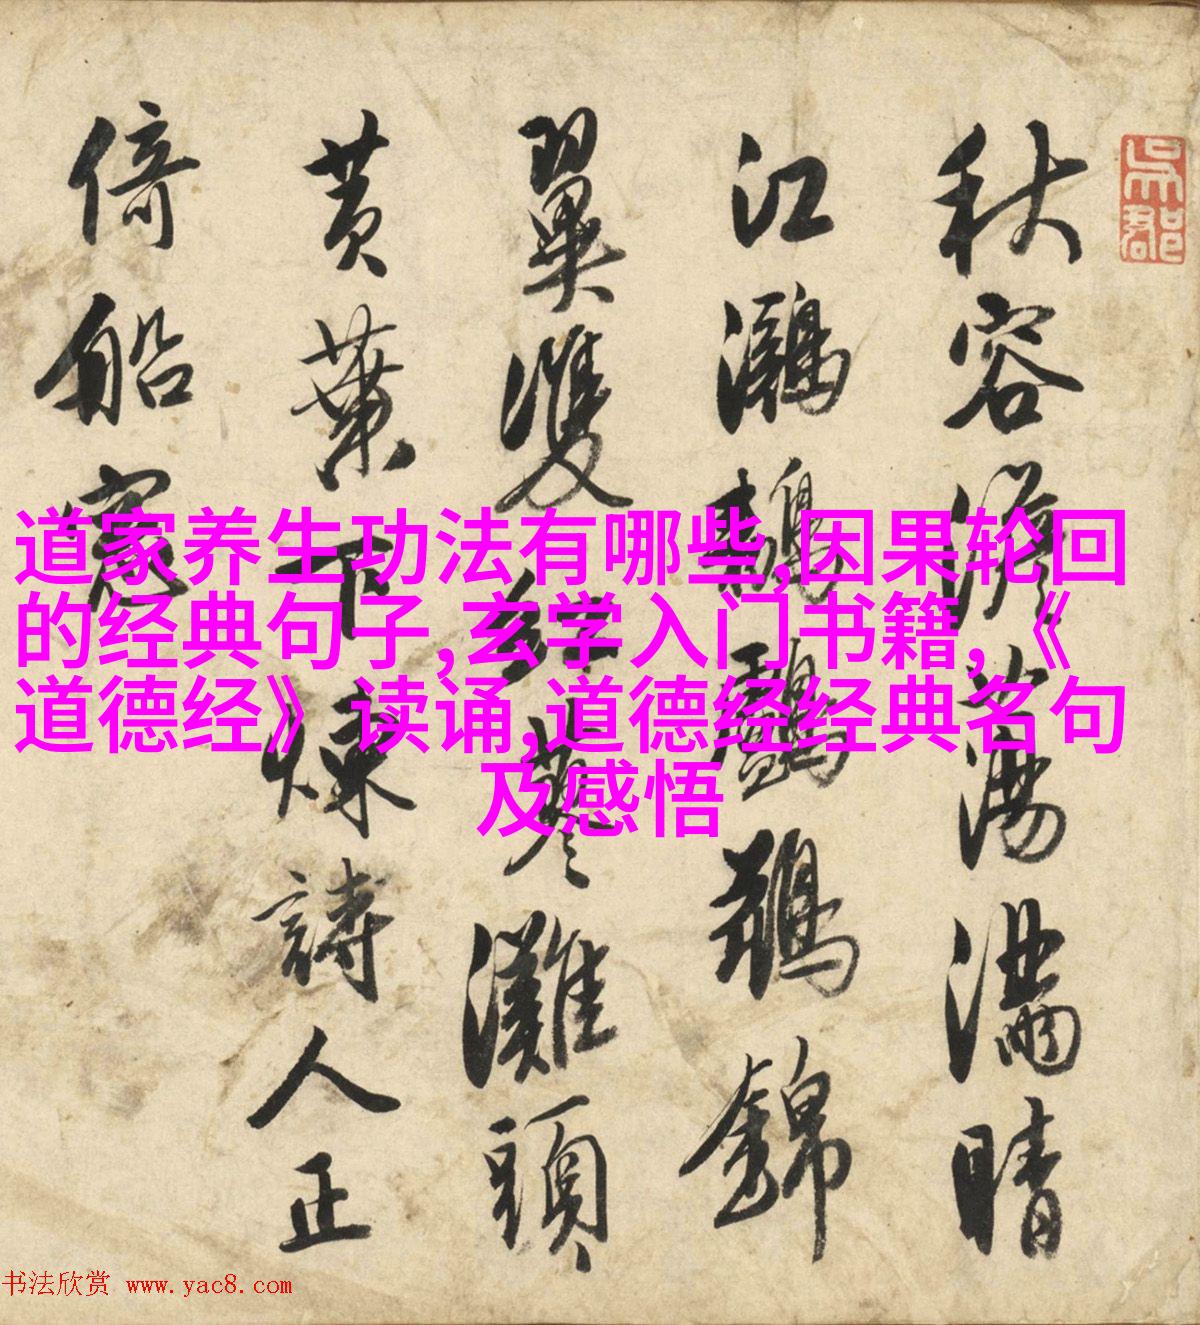 吳郡
秋容蕩滿晴
江鸂鶒錦
翼雙紅蓼灘頭
黃葉下煉詩人正
倚船窓
道家养生功法有哪些,因果轮回
的经典句子,玄学入门书籍,《
道德经》读诵,道德经经典名句
及感悟
书法欣赏 www.yac8.com